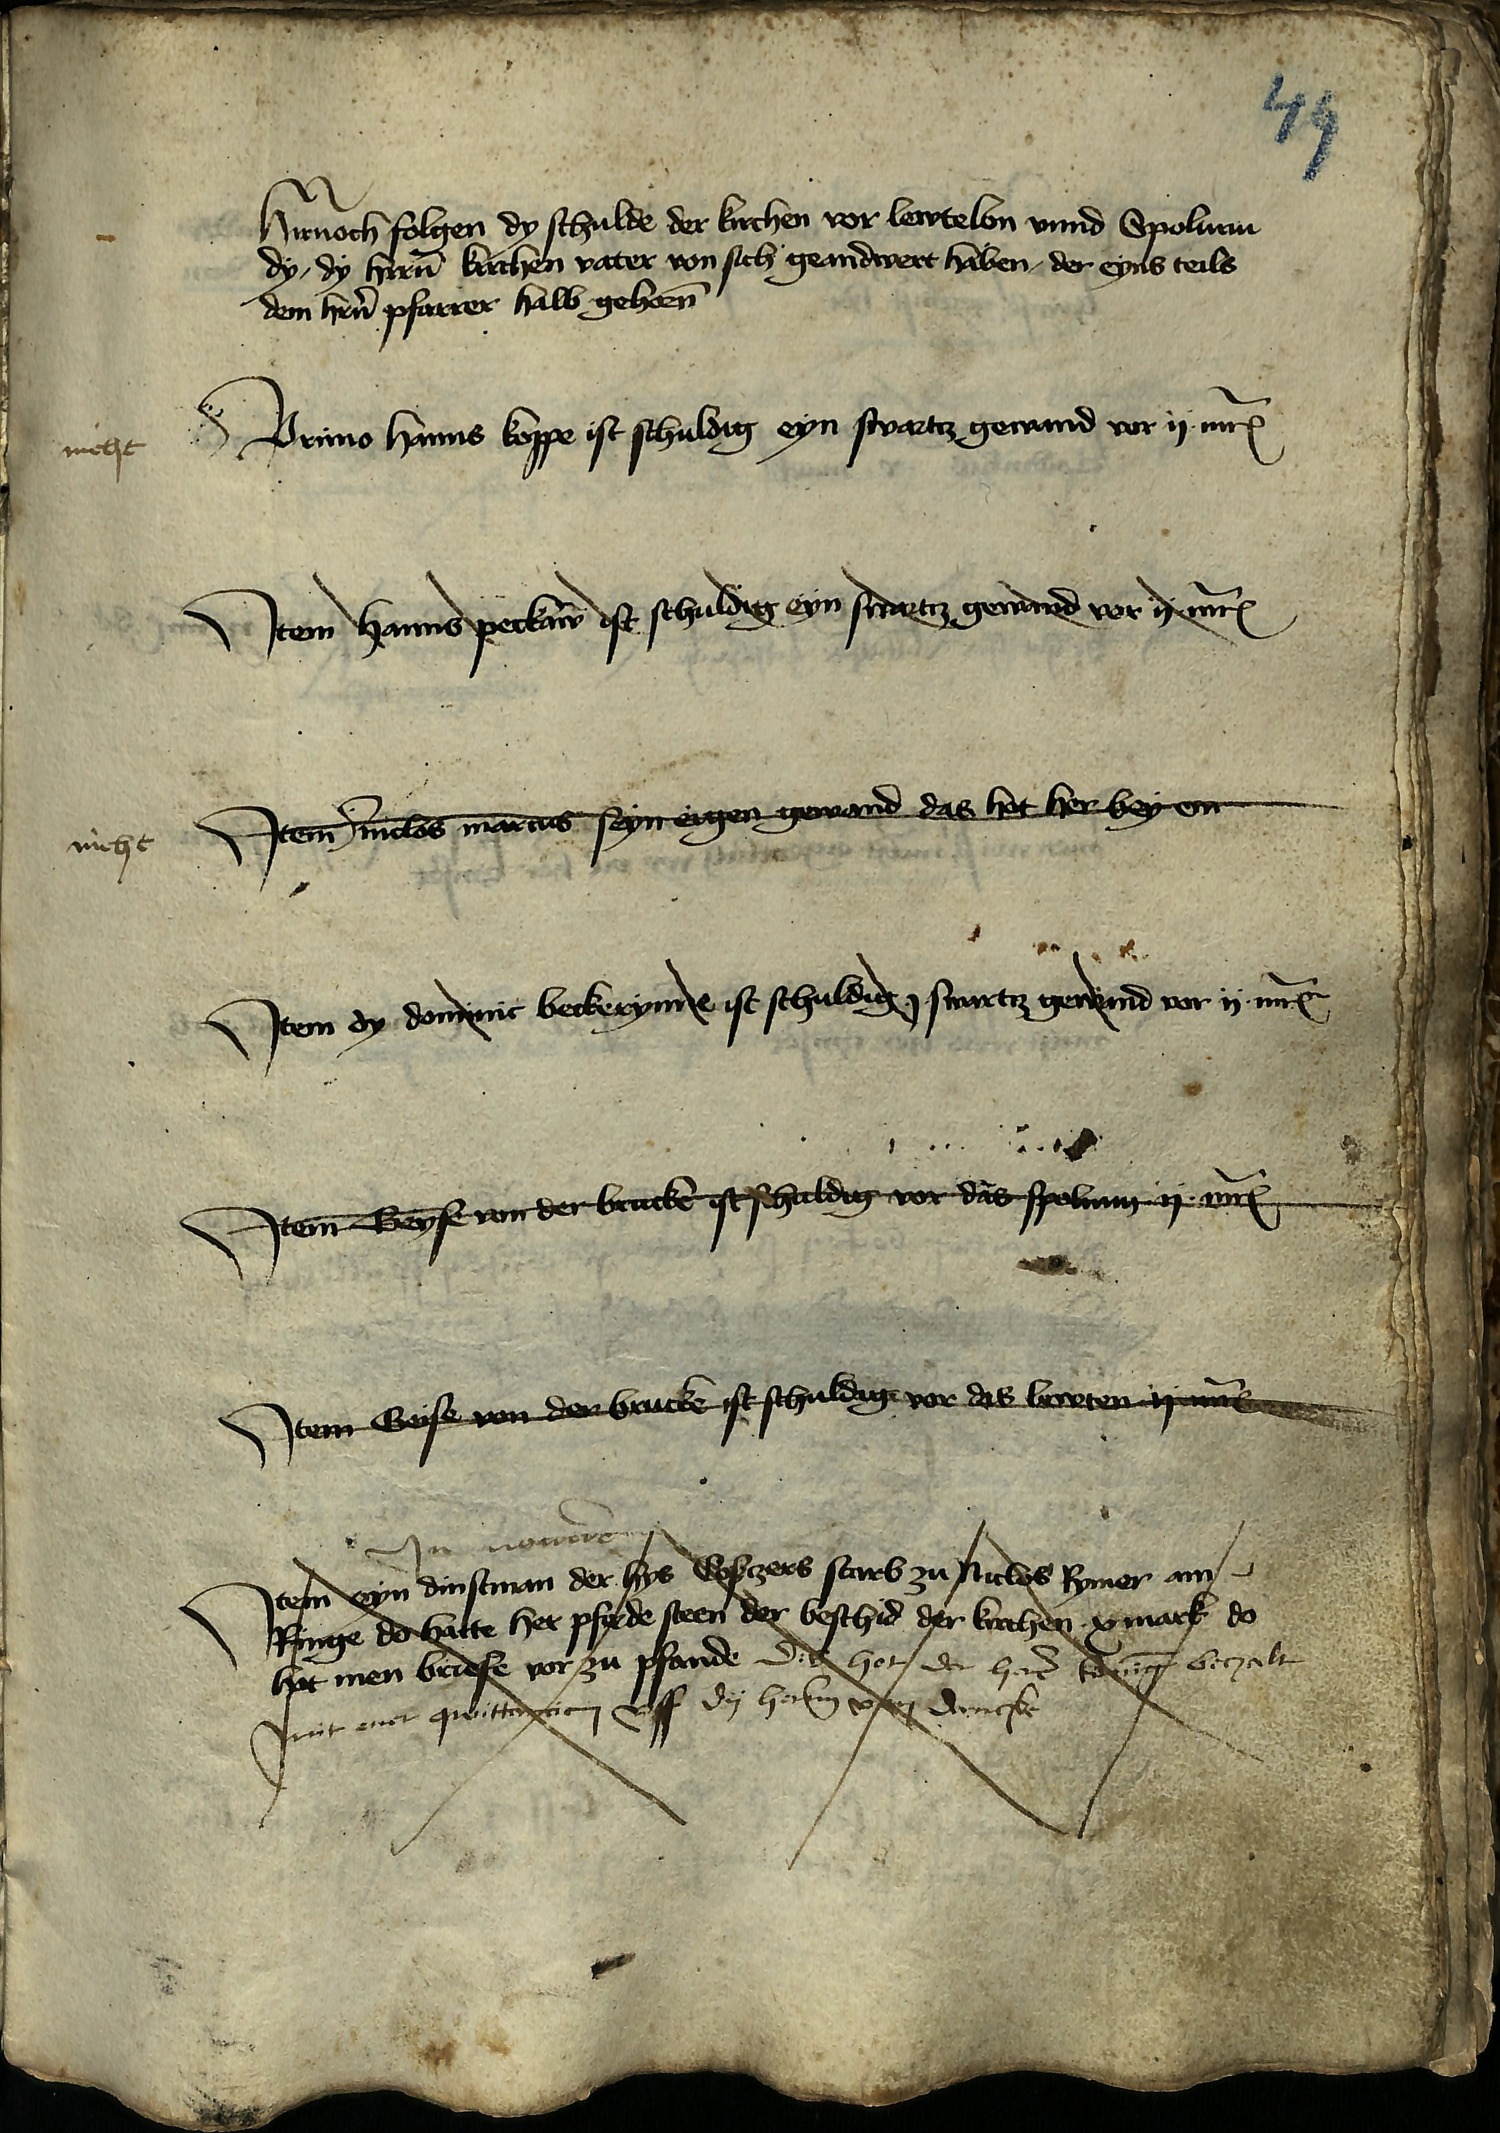 49
Hirnoch folgen dy schulde der kirchen vor lewtelon vnnd Spolium
dy, dy herñ kirchen vater von sich geandwert haben, der eyns teils
dem herñ pfarrer halb gehorñ
nicht
Primo Hanns koppe ist schuldig eyn swartcz gewand vor ij mr̃
Item Hanns peckaw ist schuldig eyn swartcz gewand vor ij mr̃
nicht
Item niclos marcus seyn eigen gewand das hot her bey em
Item dy dominic beckerynne ist schuldig j swartcz gewand vor ij mr̃
Item Geyse von der brucke ist schuldig vor das spolium ij mr̃
Item Geise von der brucke ist schuldig vor das lewten ij mr̃
Item eyn dinstman der hys starb zu Niclos Rymer am
Ringe do hatte her pferde steen der beschid der kirchen x mark do
hot men briefe vor zu pfande Dis hot der betzalt
mit ener quittancien vff dy